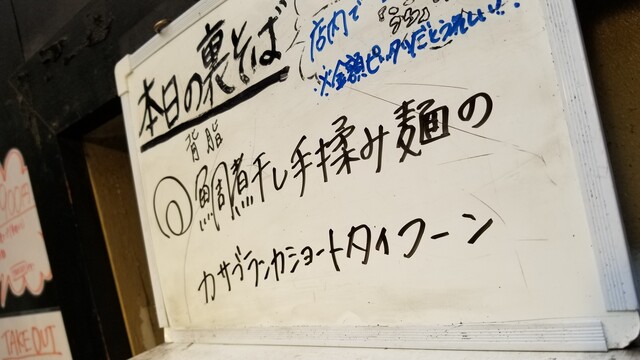 本日の裏そば
店内で
※金額ピッタリだとうれしい!!
背脂
鯛煮干し手揉み麺の
カサブランカショートタイフーン
TAKE OUT